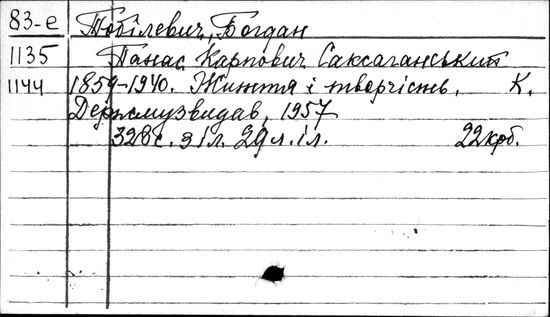 83-е Тобілевич, Богдан
1135 Панас Карпович Саксаганський
1144 1859-1940. Життя і творчість. К.
Держмузвидав, 1957
328 с. з іл. 29 л. іл. 22 крб.